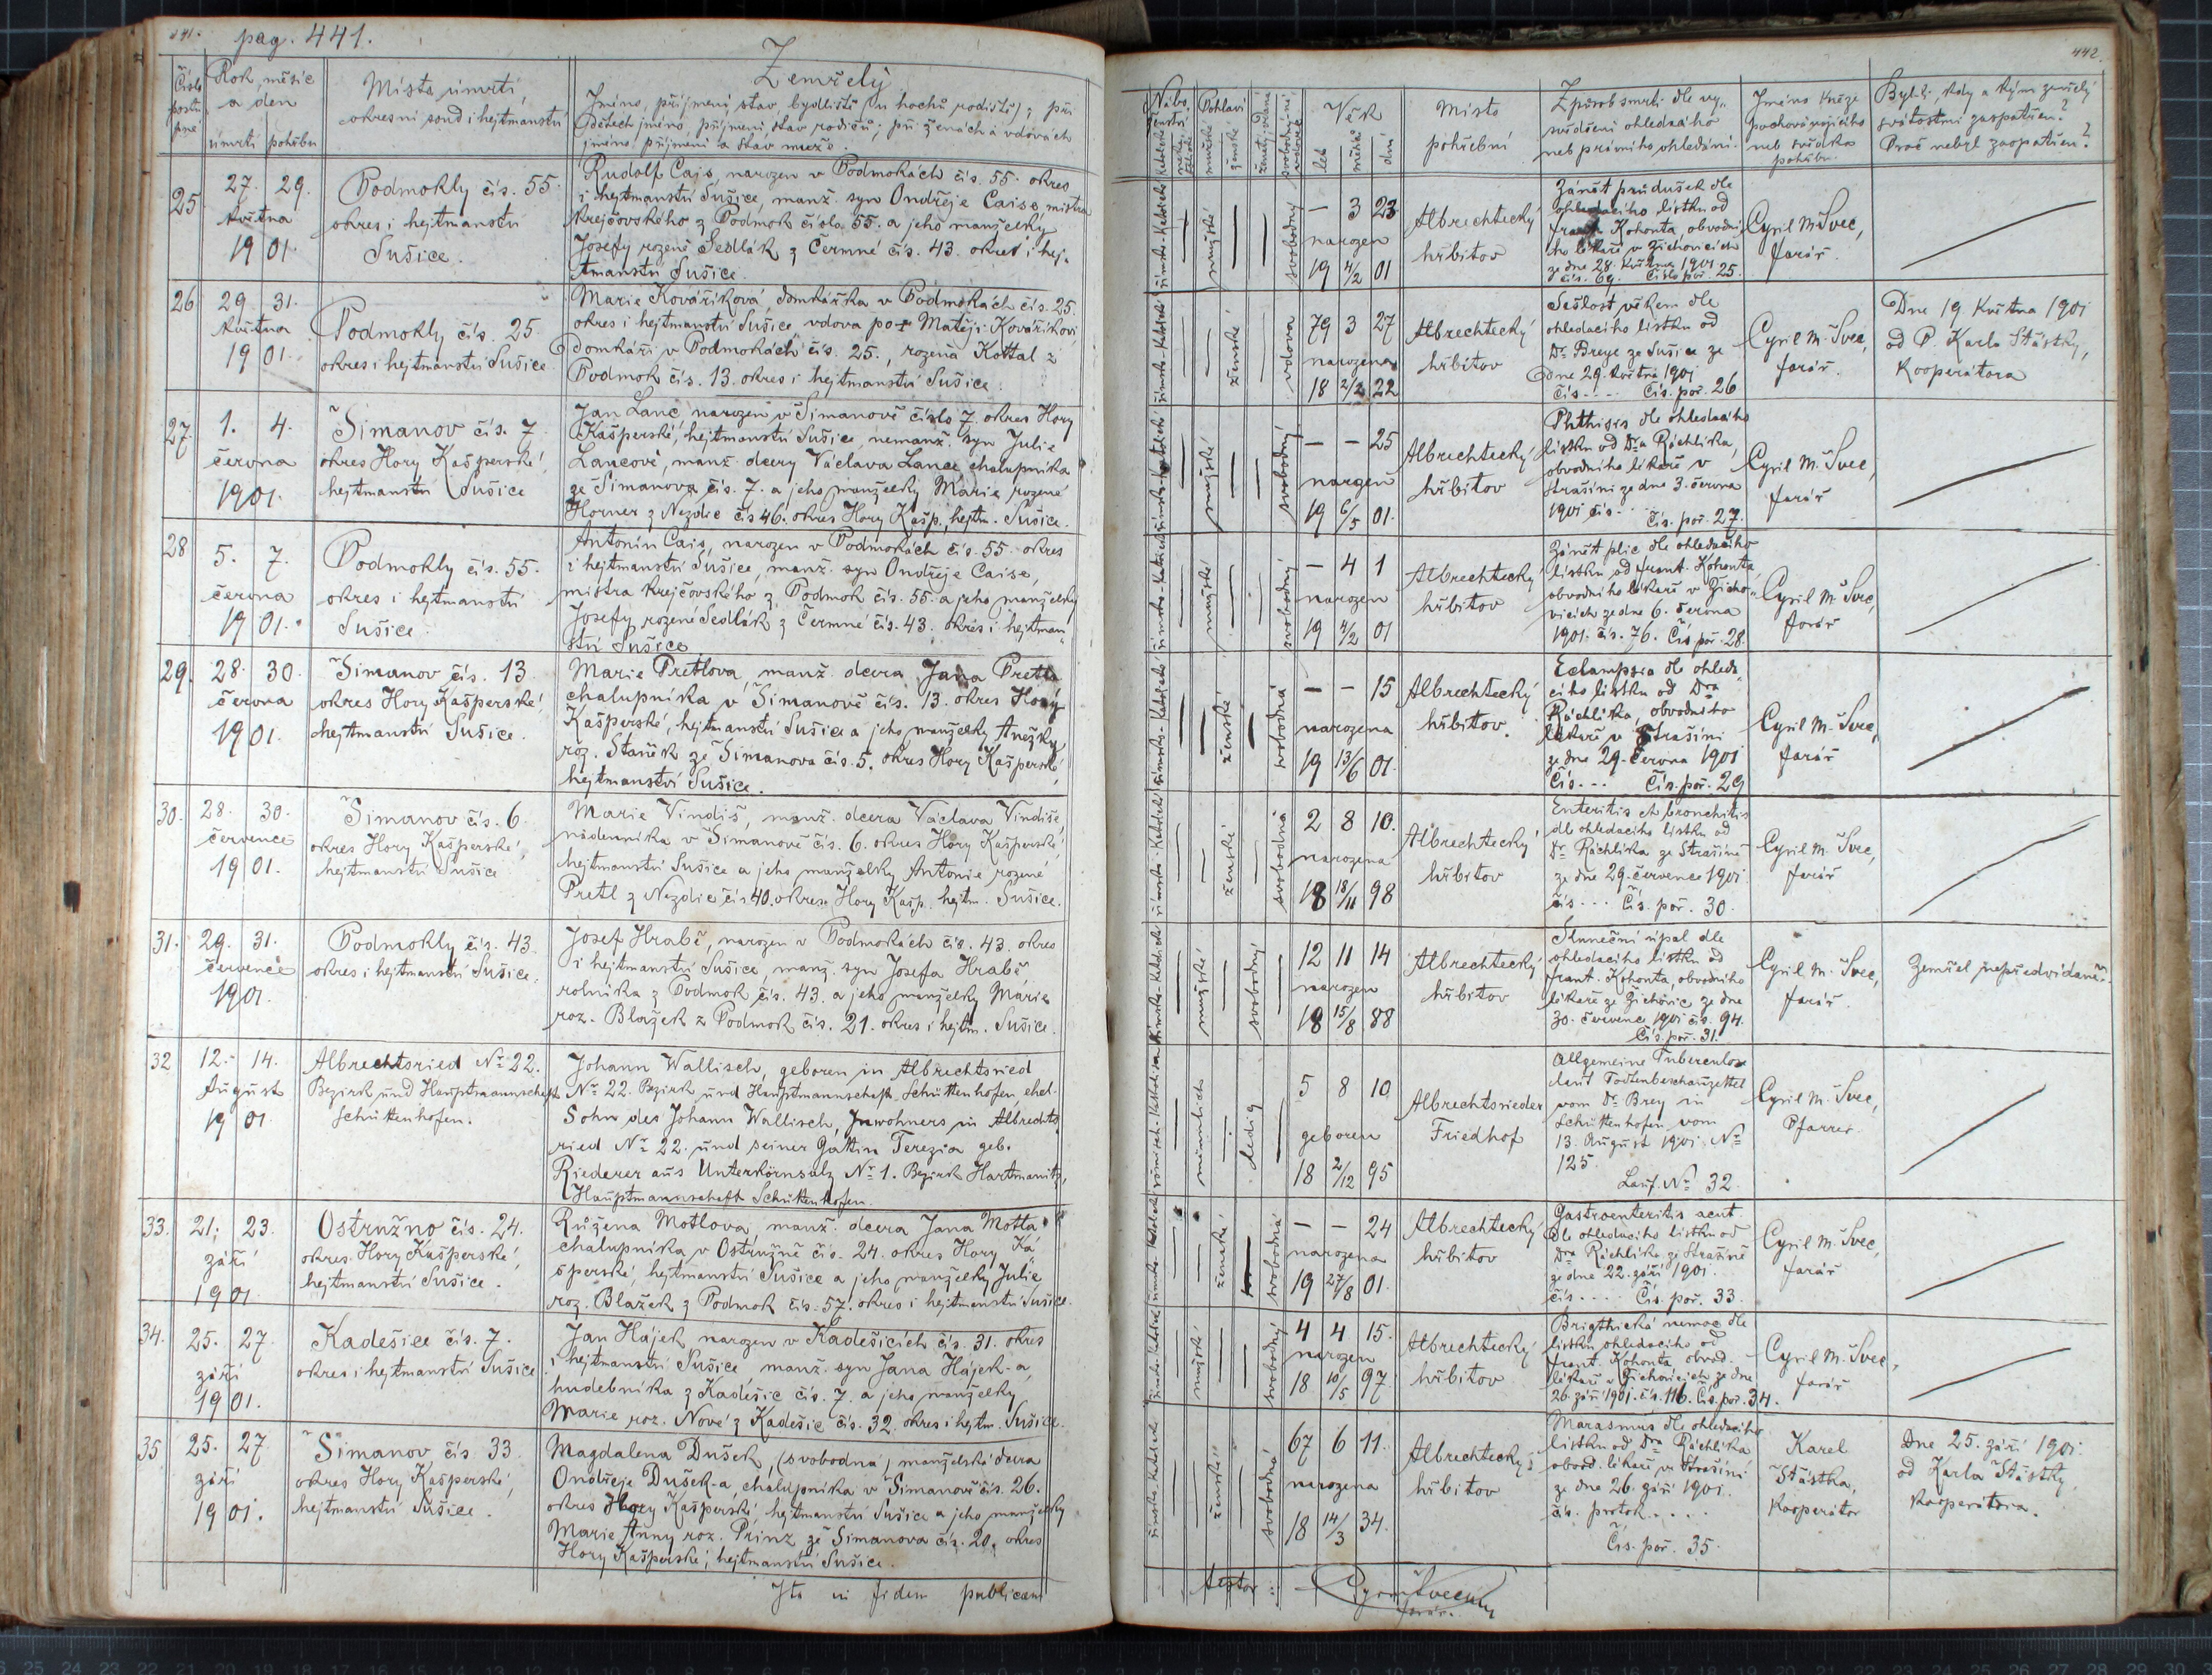 441.
pag. 441.
Číslo postupné
Rok, měsíc
a den
úmrtí pohřbu
Místo úmrtí,
okresní soud i hejtmanství
Zemřelý
Jméno, příjmení, stav, bydliště (u hochů rodiště); při
dětech jméno, příjmení, stav rodičů; při ženách a vdovách
jméno, příjmení a stav muže.
25
27. 29.
května
1901
Podmokly čís. 55.
okres i hejtmanství
Sušice.
Rudolf Cais, narozen v Podmokách čís. 55. okres
i hejtmanství Sušice, manž. syn Ondřeje Caise, mistra
krejčovského z Podmok číslo 55. a jeho manželky
Josefy rozené Sedlák z Čermné čís. 43. okres i hej-
tmanství Sušice.
26
29. 31.
května
1901.
Podmokly čís. 25
okres i hejtmanství Sušice.
Marie Kovaříková, domkářka v Podmokách čís. 25.
okres i hejtmanství Sušice vdova po Matěji Kovaříkovi
domkáři v Podmokách čís. 25., rozená Kottal z
Podmok čís. 13. okres i hejtmanství Sušice.
27.
1. 4.
června
1901.
Šimanov čís. 7.
okres Hory Kašperské,
hejtmanství Sušice
Jan Lanc, narozen v Šimanově číslo 7. okres Hory
Kašperské, hejtmanství Sušice, nemanž. syn Julie
Lancové, manž. dcery Václava Lance, chalupníka
ze Šimanova čís. 7. a jeho manželky Marie, rozené
Horner z Nezdic čís 46. okres Hory Kašp., hejtm. Sušice.
28
5. 7.
června
1901.
Podmokly čís. 55.
okres i hejtmanství
Sušice.
Antonín Cais, narozen v Podmokách čís. 55. okres
i hejtmanství Sušice, manž. syn Ondřeje Caise,
mistra krejčovského z Podmok čís. 55. a jeho manželky
Josefy rozené Sedlák z Čermné čís. 43. okres i hejtman-
ství Sušice
29.
28. 30.
června
1901.
Šimanov čís. 13
okres Hory Kašperské,
hejtmanství Sušice.
Marie Pretlova, manž. dcera Jana Pretla
chalupníka v Šimanově čís. 13. okres Hory
Kašperské, hejtmanství Sušice a jeho manželky Anežky
roz. Staněk ze Šimanova čís. 5. okres Hory Kašperské,
hejtmanství Sušice.
30.
28. 30.
července
1901.
Šimanov čís. 6.
okres Hory Kašperské,
hejtmanství Sušice
Marie Vindiš, manž. dcera Václava Vindiše,
nádenníka v Šimanově čís. 6. okres Hory Kašperské,
hejtmanství Sušice a jeho manželky Antonie rozené
Pretl z Nezdic čís 40. okres Hory Kašp. hejtm. Sušice.
31.
29. 31.
července
1901.
Podmokly čís. 43.
okres i hejtmanství Sušice.
Josef Hrabě, narozen v Podmokách čís. 43. okres
i hejtmanství Sušice, manž. syn Josefa Hrabě
rolníka z Podmok čís. 43. a jeho manželky Marie
roz. Blažek z Podmok čís. 21. okres i hejtm. Sušice.
32
12. 14.
August
1901
Albrechtsried No 22.
Bezirk und Hauptmannschaft
Schüttenhofen.
Johann Wallisch, geboren in Albrechtsried
No 22. Bezirk und Hauptmannschaft Schüttenhofen, ehel.
Sohn des Johann Wallisch, Inwohners in Albrechts-
ried No 22. und seiner Gattin Terezia geb.
Riederer aus Unterkörnsalz No 1. Bezirk Hartmanitz,
Hauptmannschaft Schüttenhofen.
33.
21. 23.
září
1901
Ostružno čís. 24.
okres Hory Kašperské,
hejtmanství Sušice.
Růžena Motlova, manž. dcera Jana Motla
chalupníka v Ostružně čís. 24. okres Hory Ka
šperské, hejtmanství Sušice a jeho manželky Julie
roz. Blažek z Podmok čís. 57. okres i hejtmanství Sušice.
34.
25. 27.
září
1901.
Kadešice čís. 7.
okres i hejtmanství Sušice
Jan Hájek, narozen v Kadešicích čís. 31. okres
i hejtmanství Sušice manž. syn Jana Hájek-a,
hudebníka z Kadešic čís. 7. a jeho manželky
Marie roz. Nové z Kadešic čís. 32. okres i hejtm. Sušice.
35
25. 27
září
1901.
Šimanov čís 33.
okres Hory Kašperské,
hejtmanství Sušice.
Magdalena Dušek, (svobodná) manželská dcera
Ondřeje Dušek-a, chalupníka v Šimanově čís. 26.
okres Hory Kašperské, hejtmanství Sušice a jeho manželky
Marie Anny roz. Prinz ze Šimanova čís. 20. okres
Hory Kašperské, hejtmanství Sušice.
Ita in fidem publicam
442.
Pohlaví
mužské
ženské
Věk
let
měsíců
dní
Místo
pohřební
Způsob smrti dle vy-
svědčení ohledacího
neb právního ohledání.
Jméno kněze
pochovávajícího
neb svědka
pohřbu
Byl-li, kdy a kým zemřelý
svátostmi zaopatřen?
Proč nebyl zaopatřen?
mužské
svobodný
— 3 23
narozen
19 4/2 01
Albrechtecký
hřbitov
Zánět průdušek dle
ohledacího lístku od
Frant. Kohouta, obvodní-
ho lékaře v Žichovicích
ze dne 28. května 1901
čís. 69. Číslo poř. 25.
Cyril M. Švec,
farář.
ženské
vdova
79 3 27
narozena
18 2/2 22
Albrechtecký
hřbitov
Sešlost věkem dle
ohledacího lístku od
Dr. Breye ze Sušice ze
dne 29. května 1901
čís. . . . Čís. poř. 26
Cyril M. Švec,
farář.
Dne 19 května 1901
od P. Karla Šťástky,
kooperátora
mužské
svobodný
— — 25
narozen
19 6/5 01.
Albrechtecký
hřbitov
Phthisis dle ohledacího
lístku od Dra Ráchlíka,
obvodního lékaře v
Strašíni ze dne 3. června
1901 čís. . . Čís. poř. 27.
Cyril M. Švec,
farář
mužské
svobodný
— 4 1
narozen
19 4/2 01
Albrechtecký
hřbitov
Zánět plic dle ohledacího
lístku od Frant. Kohouta,
obvodního lékaře v Žicho-
vicích ze dne 6. června
1901. čís. 76. Čís. poř. 28.
Cyril M. Švec,
farář
ženské
svobodná
— — 15
narozena
19 13/6 01.
Albrechtecký
hřbitov.
Eclampsia dle ohleda-
cího lístku od Dra
Ráchlíka, obvodního
lékaře v Strašíni
ze dne 29. června 1901
Čís. . . Čís. poř. 29
Cyril M. Švec,
farář
ženské
svobodná
2 8 10.
narozena
18 18/11 98
Albrechtecký
hřbitov
Enteritis et bronchitis
dle ohledacího lístku od
Dr. Ráchlíka ze Strašíně
ze dne 29. července 1901
čís. . . . Čís. poř. 30.
Cyril M. Švec,
farář
mužské
svobodný
12 11 14
narozen
18 15/8 88
Albrechtecký
hřbitov
Sluneční úpal dle
ohledacího lístku od
Frant. Kohouta, obvodního
lékaře ze Žichovic ze dne
30. července 1901 čís. 94.
Čís. poř. 31.
Cyril M. Švec,
farář.
Zemřel nepředvídaně.
männlich
ledig
5 8 10
geboren
18 2/12 95
Albrechtsrieder
Friedhof
Allgemeine Tuberculose
laut Todtenbeschauzettel
vom Dr. Brey in
Schüttenhofen vom
13. August 1901. No
125.
Lauf. No 32.
Cyril M. Švec,
Pfarrer.
ženské
svobodná
— — 24
narozena
19 27/8 01.
Albrechtecký
hřbitov
Gastroenteritis acut.
dle ohledacího lístku od
Dra Ráchlíka ze Strašíně
ze dne 22. září 1901.
čís. . . . Čís. poř. 33.
Cyril M. Švec,
farář
mužské
svobodný
4 4 15.
narozen
18 10/5 97
Albrechtecký
hřbitov
Brigthická nemoc dle
lístku ohledacího od
Frant. Kohouta, obvod.
lékaře v Žichovicích ze dne
26. září 1901. čís. 116. Čís. poř. 34.
Cyril M. Švec,
farář
ženské
svobodná
67 6 11.
narozena
18 14/3 34.
Albrechtecký
hřbitov
Marasmus dle ohledacího
lístku od Dra Ráchlíka
obvod. lékaře ve Strašíni
ze dne 26. září 1901.
čís. protok. . . .
Čís. poř. 35.
Karel
Šťástka,
kooperátor
Dne 25. září 1901.
od Karla Šťástky,
kooperátora.
testor
farář.